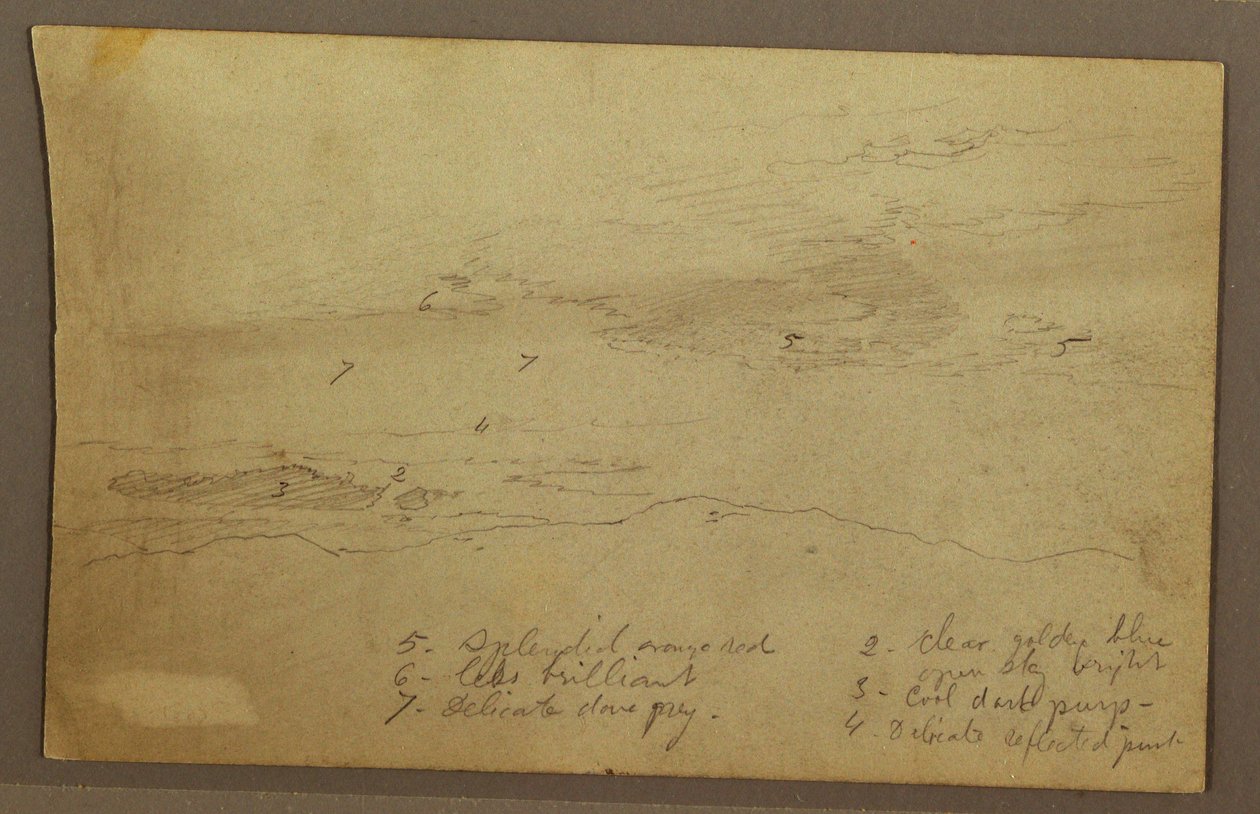 6
5
5
7
7
4
2
3
5- Splendid orange red
6- less brilliant
7- Delicate dove grey.
2- clear golden blue
open sky bright
3- Cool dark purp-
4- Delicate reflected pink